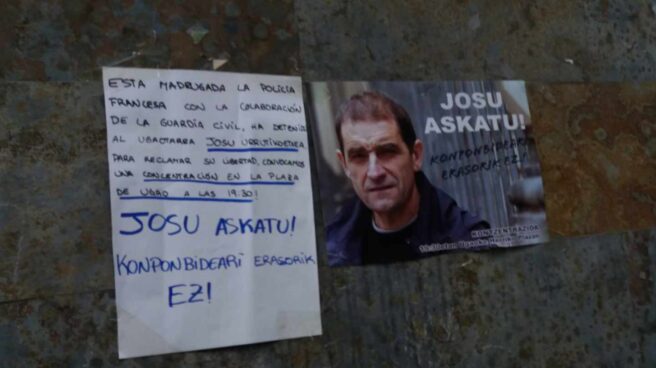 ESTA MADRUGADA LA POLICIA
FRANCESA CON LA COLABORACIÓN
DE LA GUARDIA CIVIL, HA DETENIDO
AL UGAOTARRA JOSU URRUTIKOETXEA
PARA RECLAMAR SU LIBERTAD, CONVOCAMOS
UNA CONCENTRACIÓN EN LA PLAZA
DE UGAO A LAS 19:30!
JOSU ASKATU!
KONPONBIDEARI ERASORIK
EZ!
JOSU
ASKATU!
KONPONBIDEARI
ERASORIK EZ!
KONTZENTRAZIOA
19:30etan Ugaoko Herriko Plazan